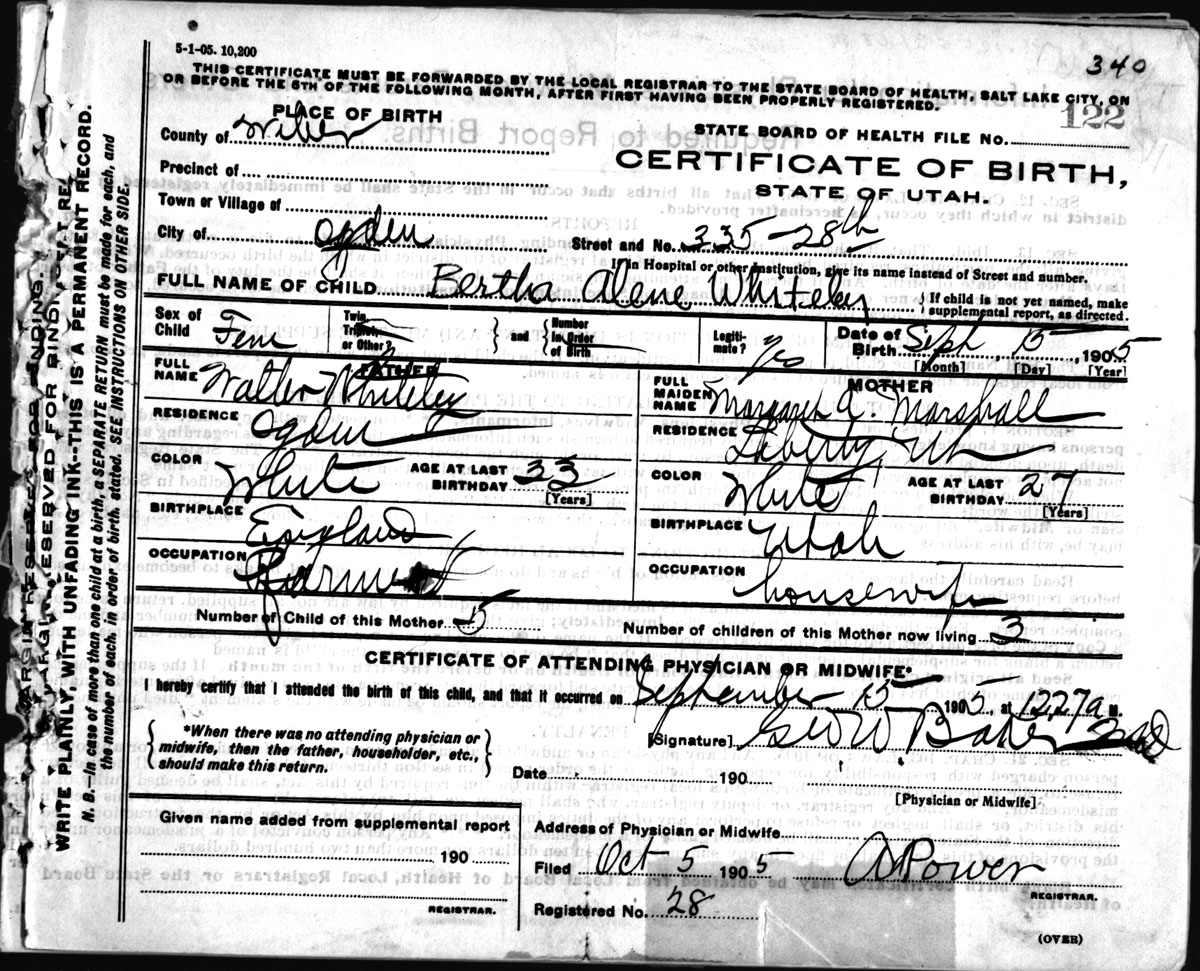 340
5-1-05. 10,200
THIS CERTIFICATE MUST BE FORWARDED BY THE LOCAL REGISTRAR TO THE STATE BOARD OF HEALTH, SALT LAKE CITY, ON
OR BEFORE THE 5TH OF THE FOLLOWING MONTH, AFTER FIRST HAVING BEEN PROPERLY REGISTERED.
122
PLACE OF BIRTH
STATE BOARD OF HEALTH FILE No.
County of Weber
CERTIFICATE OF BIRTH,
Precinct of
STATE OF UTAH.
Town or Village of
City of Ogden Street and No. 335-28th
If in Hospital or other institution, give its name instead of Street and number.
FULL NAME OF CHILD Bertha Alene Whiteley { If child is not yet named, make
supplemental report, as directed.
Sex of Child Fem Twin, Triplet, or Other? } and { Number in Order of Birth Legiti-mate? Yes Date of Birth Sept 15, 1905
[Month] [Day] [Year]
FATHER
FULL NAME Walter Whiteley
RESIDENCE Ogden
COLOR White AGE AT LAST BIRTHDAY 33
[Years]
BIRTHPLACE England
OCCUPATION Farmer
MOTHER
FULL MAIDEN NAME Marshall
RESIDENCE Liberty Ut
COLOR White AGE AT LAST BIRTHDAY 27
[Years]
BIRTHPLACE Utah
OCCUPATION housewife
Number of Child of this Mother 5 Number of children of this Mother now living 3
CERTIFICATE OF ATTENDING PHYSICIAN OR MIDWIFE*
I hereby certify that I attended the birth of this child, and that it occurred on September 15 1905, at 1227 a M.
{ *When there was no attending physician or
midwife, then the father, householder, etc.,
should make this return. }
[Signature] Geo W Baker
Date 190
[Physician or Midwife]
Given name added from supplemental report
190
REGISTRAR.
Address of Physician or Midwife
Filed Oct 5 1905 A Power
REGISTRAR.
Registered No. 28
(OVER)
MARGIN RESERVED FOR BINDING
WRITE PLAINLY, WITH UNFADING INK--THIS IS A PERMANENT RECORD.
N. B.--In case of more than one child at a birth, a SEPARATE RETURN must be made for each, and
the number of each, in order of birth, stated. SEE INSTRUCTIONS ON OTHER SIDE.